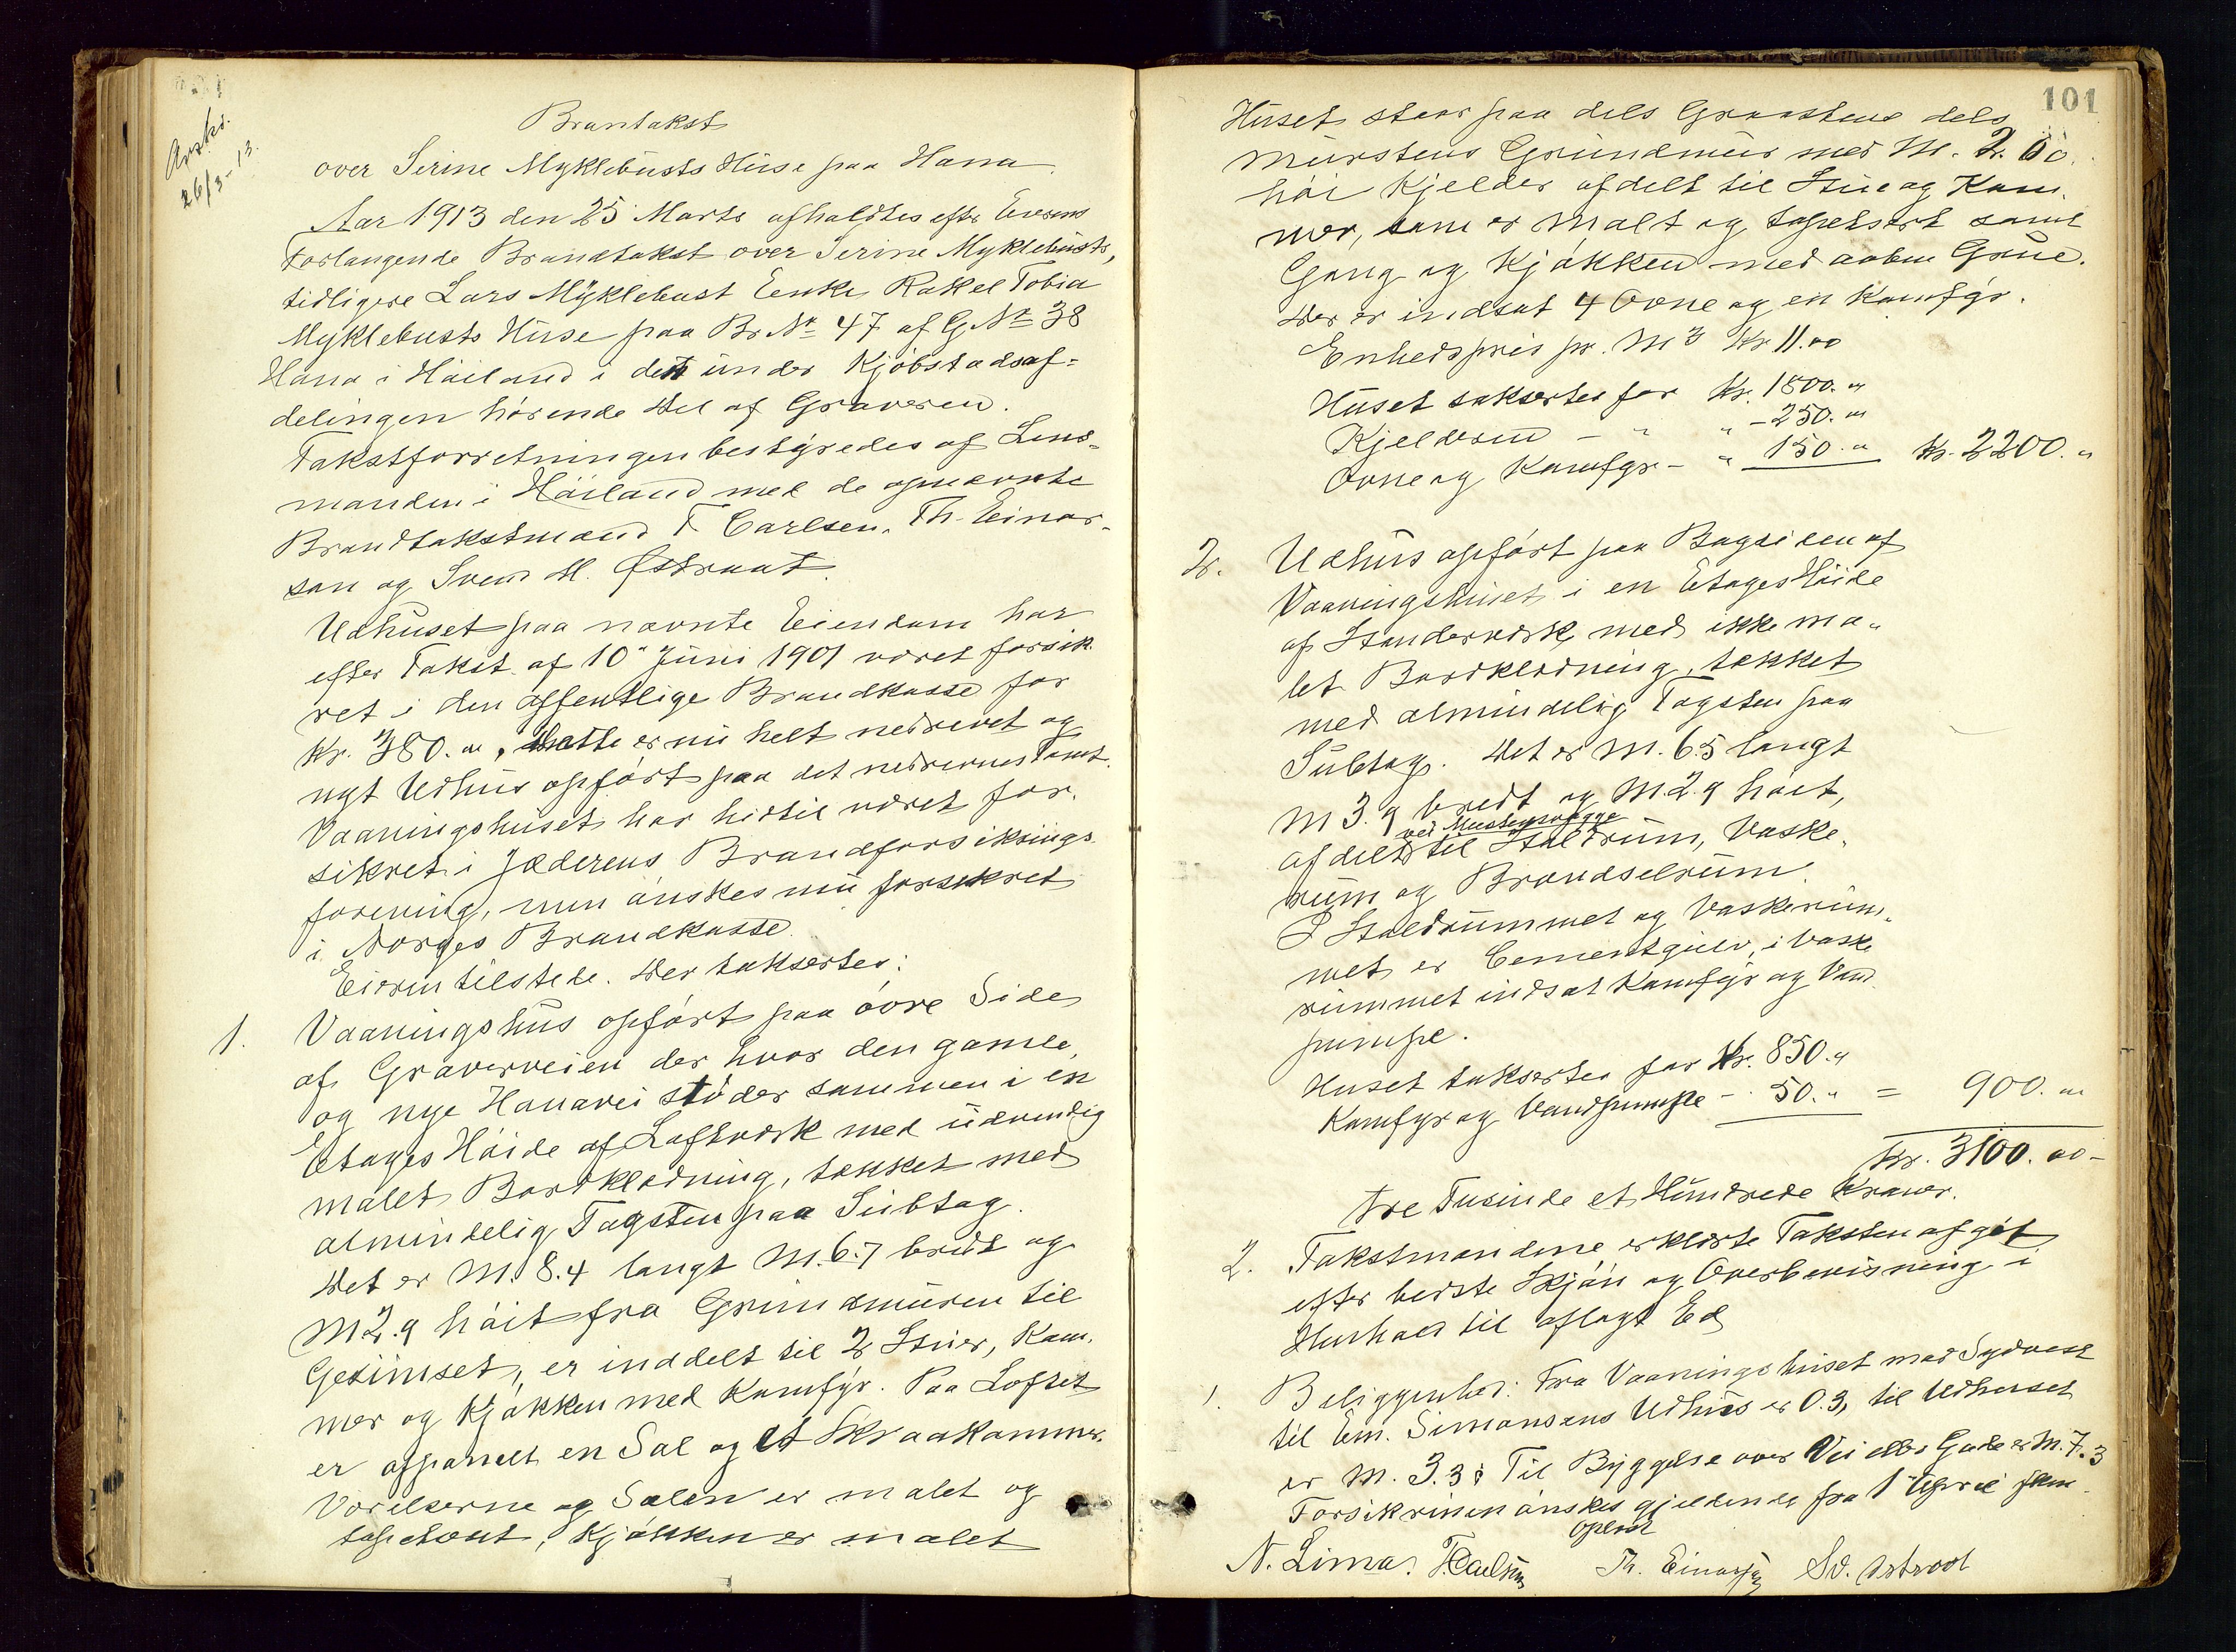 Arskr.
26/3-13.
Brantakst
over Serine Myklebusts Huse paa Hana.
Aar 1913 den 25 Marts afholdtes efter Eierens
Forlangende Brandtakst over Serine Myklebusts,
tidligere Lars Myklebust Enke Rakel Tobia
Myklebusts Huse paa Br.Nr. 47 af G.Nr. 38
Hana i Høiland i den under Kjøbstadsaf-
delingen hørende Del af Graveren.
Takstforretningen bestyredes af Lens-
manden i Høiland med de opnævnte
Brandtakstmænd T. Carlsen, Th. Einar-
sen og Svend M. Østraat.
Udhuset paa nævnte Eiendom har
efter Takst af 10" Juni 1901 været forsik-
ret i den offentlige Brandkasse for
Kr. 380.00, dette er nu helt nedrevet og
nyt Udhus opført paa det nedrevnes Tomt.
Vaaningshuset har hidtil været for-
sikret i Jæderens Brandforsikrings-
forening, men ønskes nu forsikret
i Norges Brandkasse.
Eieren tilstede. Der taksertes:
1. Vaaningshus opført paa øvre Side
af Graverveien der hvor den gamle
og nye Hanavei støder sammen i en
Etages Høide af Loftverk med udvendig
malet Bordklædning, tækket med
almindelig Tagsten paa Subtag.
Det er M. 8.4 langt M. 6.7 bredt og
M 2.9 høit fra Grundmuren til
Gesimset, er inddelt til 2 Stuer, Kam-
mer og Kjøkken med Komfyr. Paa Loftet
er afpanelt en Sal og et Skraakammer.
Værelserne og Salen er malet og
tapetsert, Kjøkken er malet
101
Huset staar paa dels Graastens dels
Murstens Grundmur med M. 2.00
høi Kjelder afdelt til Stue og Kam-
mer, som er malt og tapetsert samt
Gang og Kjøkken med aaben Grue.
Der er indsat 4 Ovne og en Komfyr.
Enhedspris pr. M3 Kr 11.00
Huset taksertes for Kr. 1800. "
Kjelderen - " " - 250. "
Ovne og Komfyr - " 150. " Kr. 2200. "
2. Udhus opført paa Bagsiden af
Vaaningshuset i en Etages Høide
af Stenderverk med ikke ma-
let Bordklædning, tækket
med almindelig Tagsten paa
Subtag. Det er M. 6.5 langt
M 3.9 bredt og M. 2.9 høit,
ved Murstensvægge
afdelt til Staldrum, Vaske-
rum og Brændselrum.
I Staldrummet og Vaskerum-
met er Cementgulv, i Vaske
rummet indsat Komfyr og Vand
pumpe.
Huset taksertes for Kr. 850. "
Komfyr og Vandpumpe - 50. " = 900. "
Kr. 3100.00-
Tre Tusinde et Hundrede Kroner.
2. Takstmændene erklærte Taksten afgit
efter bedste Skjøn og Overbevisning i
Henhold til aflagt Ed
1. Beliggenhed: Fra Vaaningshuset mod Sydvest
til Em. Simonsens Udhus er 0.3, til Udhuset
er M. 3.3. Til Byggelse over Vei eller Gade er M. 7.3
Forsikringen ønskes gjeldende fra 1" April fkm.
Oplæst
N. Lima. T. Carlsen Th. Einarsen Sv. Østraat